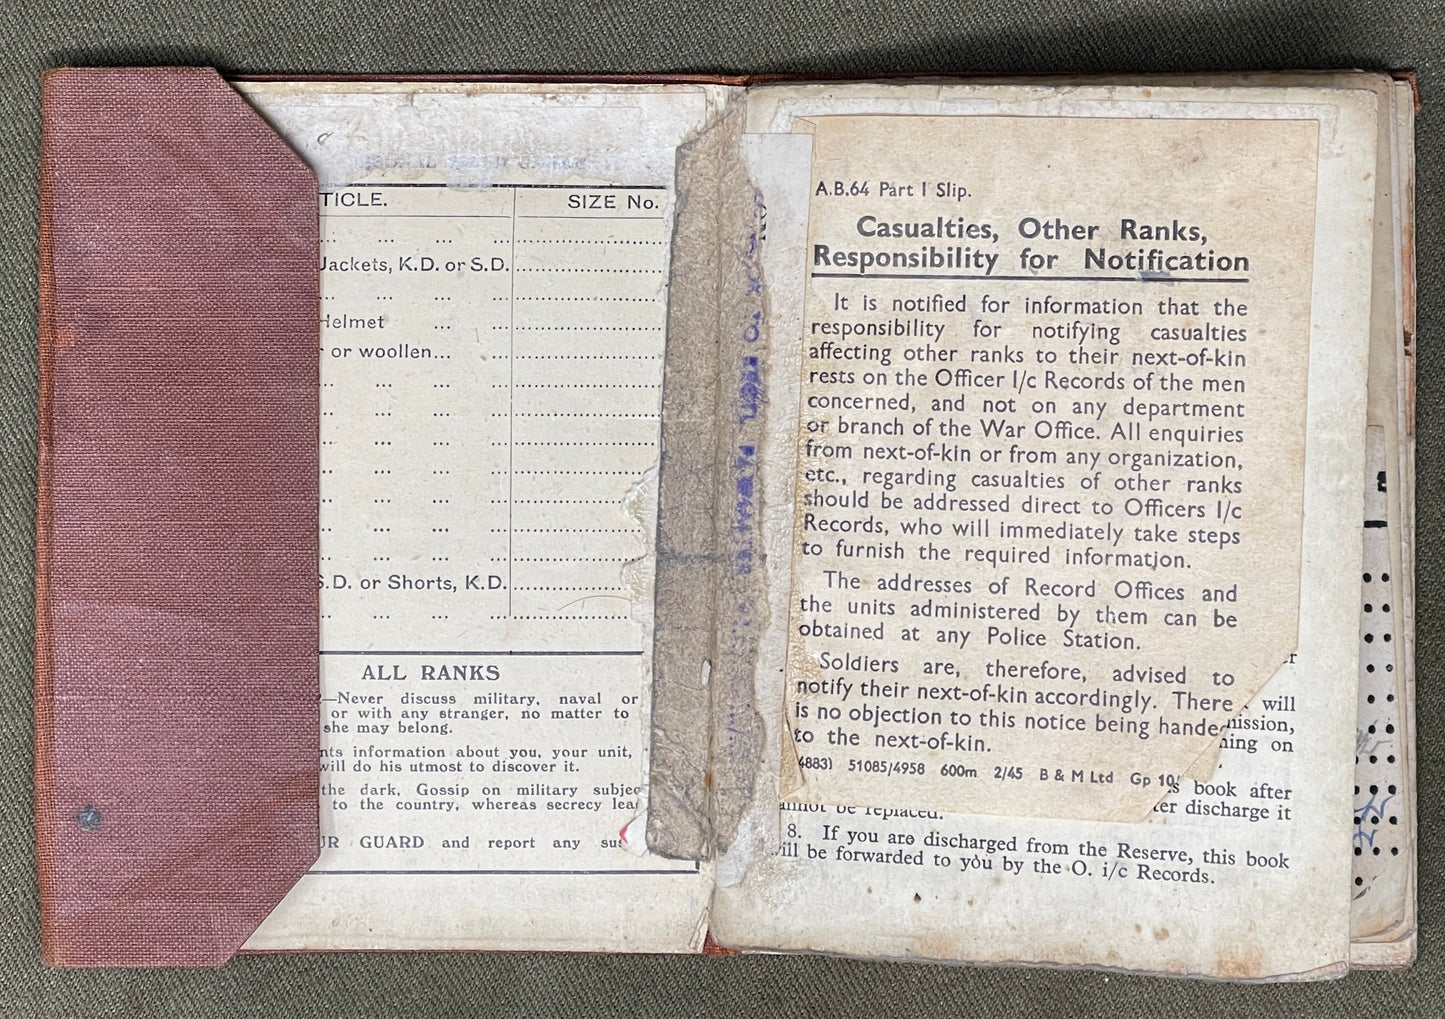 TICLE. SIZE No.
Jackets, K.D. or S.D.
Helmet
or woollen...
S.D. or Shorts, K.D.
ALL RANKS
—Never discuss military, naval or
or with any stranger, no matter to
she may belong.
nts information about you, your unit,
will do his utmost to discover it.
the dark, Gossip on military subjec
to the country, whereas secrecy lea
UR GUARD and report any sus
A.B.64 Part 1 Slip.
Casualties, Other Ranks,
Responsibility for Notification
It is notified for information that the
responsibility for notifying casualties
affecting other ranks to their next-of-kin
rests on the Officer I/c Records of the men
concerned, and not on any department
or branch of the War Office. All enquiries
from next-of-kin or from any organization,
etc., regarding casualties of other ranks
should be addressed direct to Officers I/c
Records, who will immediately take steps
to furnish the required information.
The addresses of Record Offices and
the units administered by them can be
obtained at any Police Station.
Soldiers are, therefore, advised to
notify their next-of-kin accordingly. There
is no objection to this notice being hande
to the next-of-kin.
4883) 51085/4958 600m 2/45 B & M Ltd Gp 10
will
mission,
ning on
s book after
annot be replaced. ter discharge it
8. If you are discharged from the Reserve, this book
will be forwarded to you by the O. i/c Records.